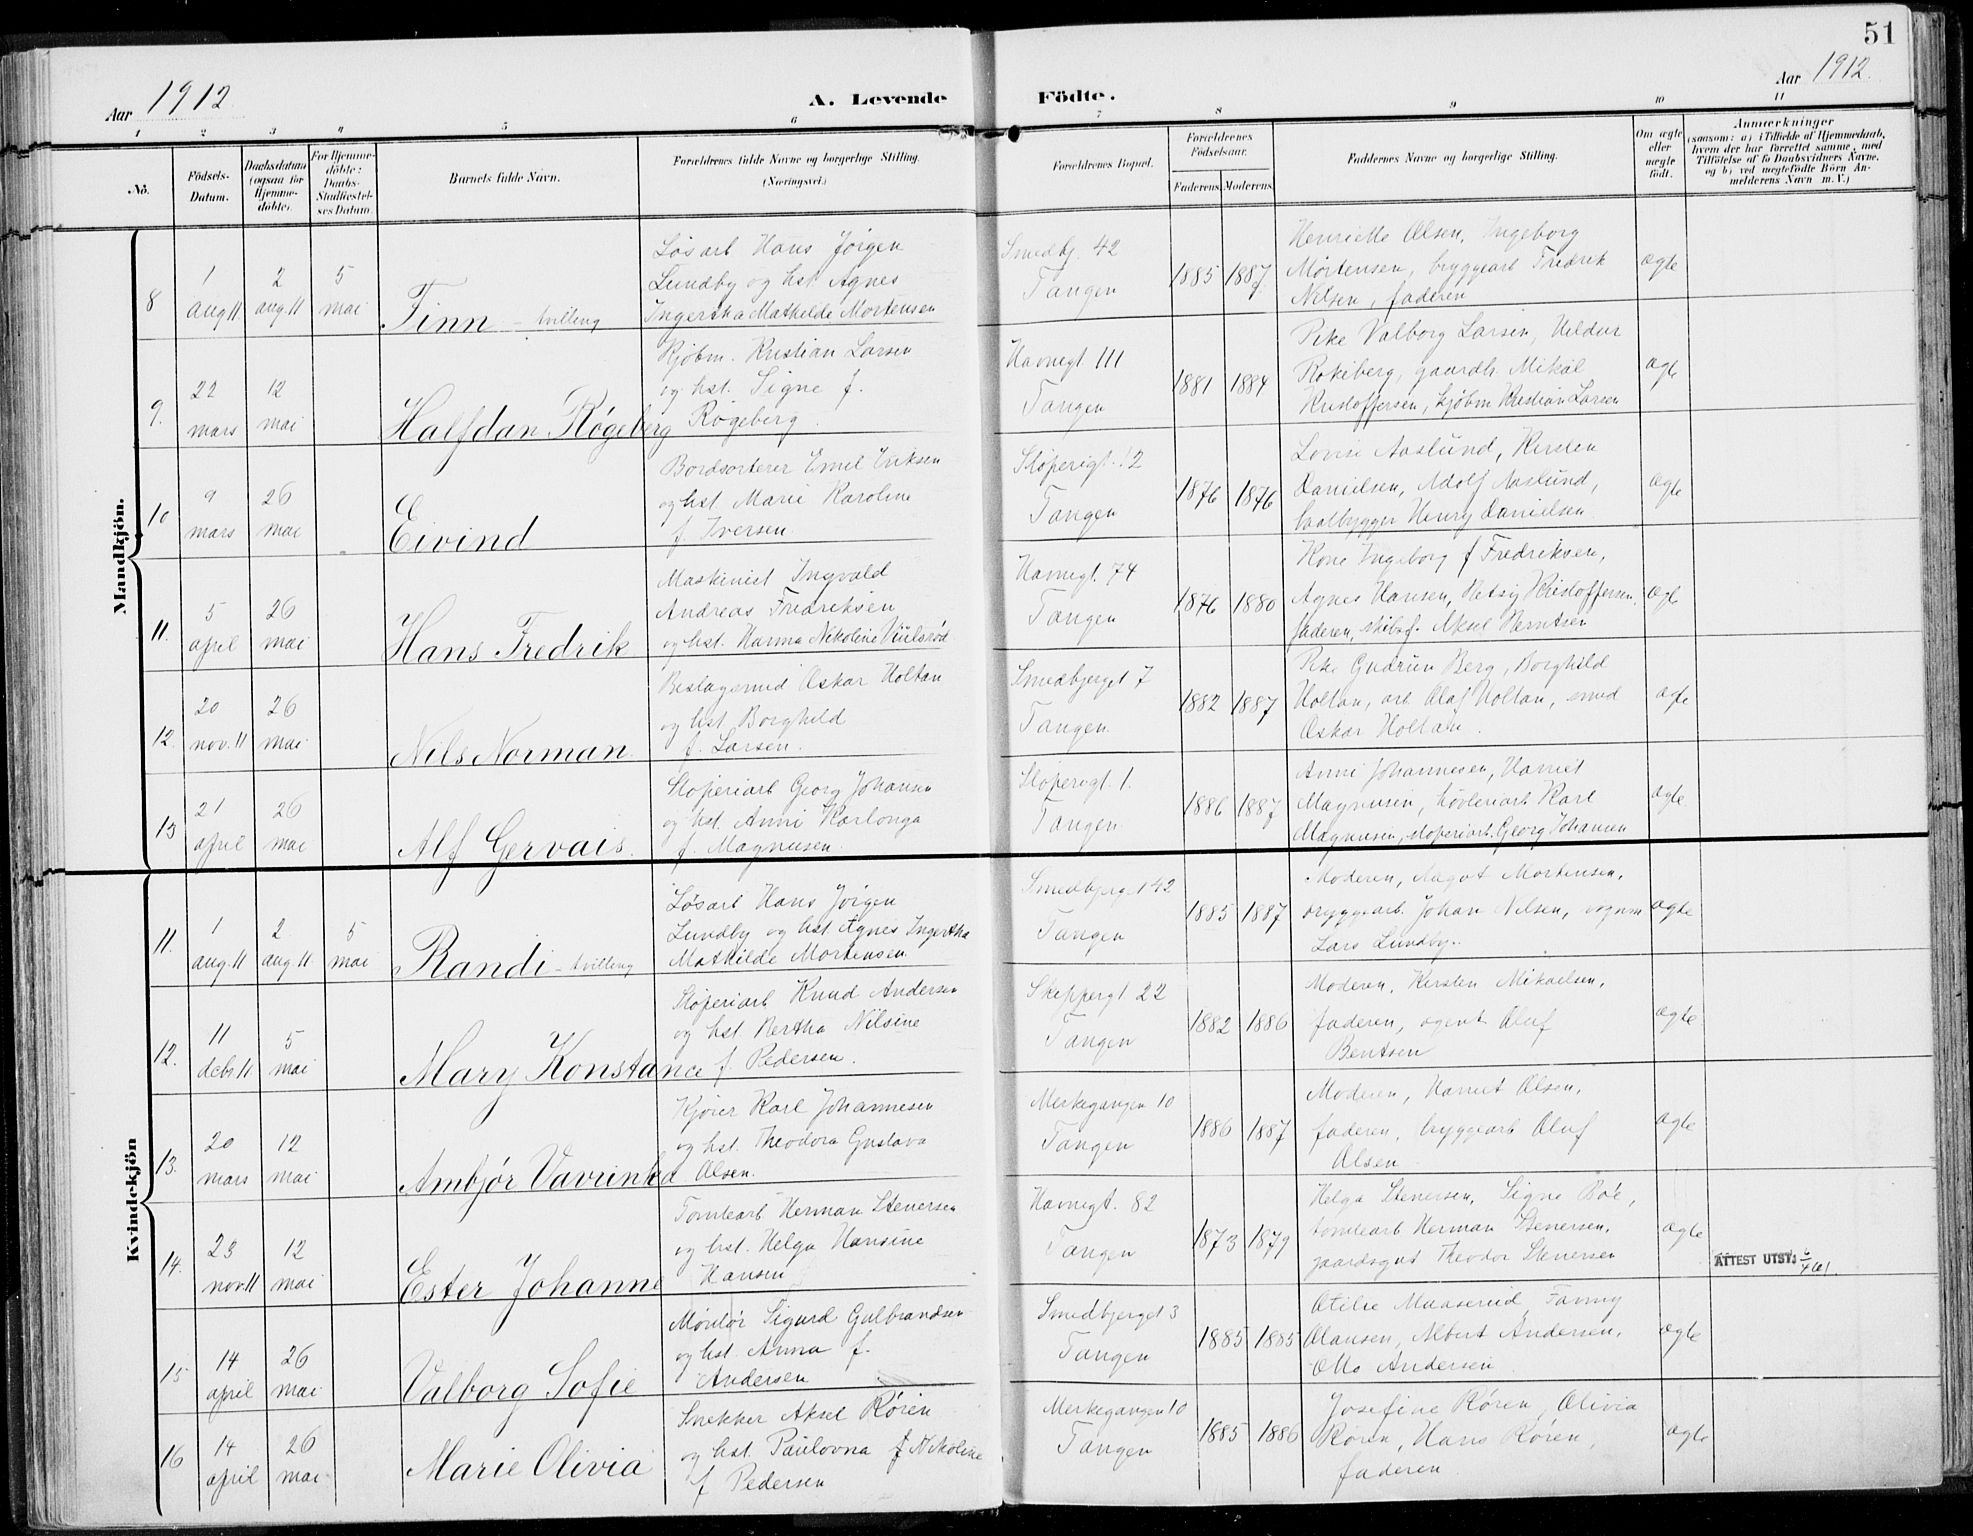 51
Aar 1912.
A. Levende
Födte.
Aar 1912.
1 2 3 4 5 6 7 8 9 10 11
No.
Födsels-
Datum.
Daabsdatum
(ogsaa for
Hjemme-
döbte).
For Hjemme-
döbte:
Daabs-
Stadfæstel-
ses Datum.
Barnets fulde Navn.
Forældrenes fulde Navne og borgerlige Stilling.
(Næringsvei.)
Forældrenes Bopæl.
Forældrenes
Födselsaar.
Faderens. Moderens.
Faddernes Navne og borgerlige Stilling.
Om ægte
eller
uegte
födt.
Anmærkninger
(saasom: a) i Tilfælde af Hjemmedaab,
hvem der har forrettet samme, med
Tilföielse af to Daabsvidners Navne,
og b) ved uegtefödte Börn An-
melderens Navn m. V.)
Mandkjön.
8
1
aug 11
2
aug. 11
5
mai
Finn - tvilling
Løsarb Hans Jørgen
Lundby og hst. Agnes
Ingertha Mathilde Mortensen
Smedbj. 42
Tangen
1885 1887
Henriette Olsen, Ingeborg
Mortensen, bryggearb Fredrik
Nilsen, faderen
ægte
9.
22
mars
12
mai
Halfdan Røgeberg
Kjøbm. Kristian Larsen
og hst. Signe f.
Røgeberg.
Havnegt 111
Tangen
1881 1884
Pike Valborg Larsen, Hildur
Rokeberg, gaardb. Mikal
Kristoffersen, kjøbm Kristian Larsen
ægte
10
9
mars
26
mai
Eivind
Bordsorterer Emil Eriksen
og hst. Marie Karoline
f. Iversen
Støperigt. 12
Tangen
1876 1876
Lovise Aaslund, Kirsten
Danielsen, Adolf Aaslund,
baatbygger Henry Danielsen
ægte
11.
5
april
26
mai
Hans Fredrik
Maskinist Ingvald
Andreas Fredriksen
og hst. Hanna Nikoline
Havnegt. 74
Tangen
1876 1880
Kone Ingeborg f Fredriksen,
Agnes Hansen, Betsy Kristoffersen,
faderen, skibsf. Aksel Berntsen
ægte
12.
20
nov. 11
26
mai
Nils Norman
Beslagsmed Oskar Holtan
og hst. Borghild
f. Larsen.
Smedbjerget 7
Tangen.
1882 1887
Pike Gudrun Berg, Borghild
Holtan, arb. Olaf Holtan, smed
Oskar Holtan.
ægte
13
21
april
26
mai
Alf Gervais.
Støperiarb Georg Johansen
og hst. Anni Karlonga
f. Magnusen.
Støperigt. 1.
Tangen.
1886 1887
Anni Johannesen, Harriet
Magnusen, høvleriarb Karl
Magnusen, støperiarb. Georg Johansen
ægte
Kvindekjön
11.
1
aug. 11
2
aug. 11
5
mai
Randi - tvilling
Løsarb Hans Jørgen
Lundby og hst. Agnes Ingertha
Mathilde Mortensen
Smedbjerget 42
Tangen
1885 1887
Moderen, Aagot Mortensen,
bryggearb. Johan Nilsen, vognm
Lars Lundby.
ægte
12.
11
debr 11
5
mai
Mary Konstance
Støperiarb Knud Andersen
og hst. Bertha Nilsine
f. Pedersen.
Skeppergt 22
Tangen
1882 1886
Moderen, Kirsten Mikaelsen,
faderen, agent Oluf
Bentsen
ægte
13.
20
mars
12
mai
Ambjør Vavrinka
Kjører Karl Johannesen
og hst. Theodora Gustava
Olsen.
Merkegangen 10
Tangen
1886 1887
Moderen, Harriet Olsen,
faderen, bryggearb Oluf
Olsen
ægte
14.
23
nov. 11
12
mai
Ester Johanne
Tomtearb Herman Stenersen
og hst. Helga Hansine
Hansen
Havnegt. 82
Tangen
1873 1879
Helga Stenersen, Signe Boe,
tomtearb Herman Stenersen,
gaardsgut Theodor Stenersen
ægte
ATTEST UTST.
15
14
april
26
mai
Valborg Sofie
Montør Sigurd Gulbrandsen
og hst Anna f.
Andersen
Smedbjerget 3
Tangen
1885 1885
Otilie Maaserud, Fanny
Olausen, Albert Andersen,
Otto Andersen
ægte
16
14
april
26
mai
Marie Olivia
Snekker Aksel Røren
og hst. Paulovna f Nikoline
f Pedersen
Merkegangen 10
Tangen
1885 1886
Josefine Røren, Olivia
Røren, Hans Røren,
faderen
ægte